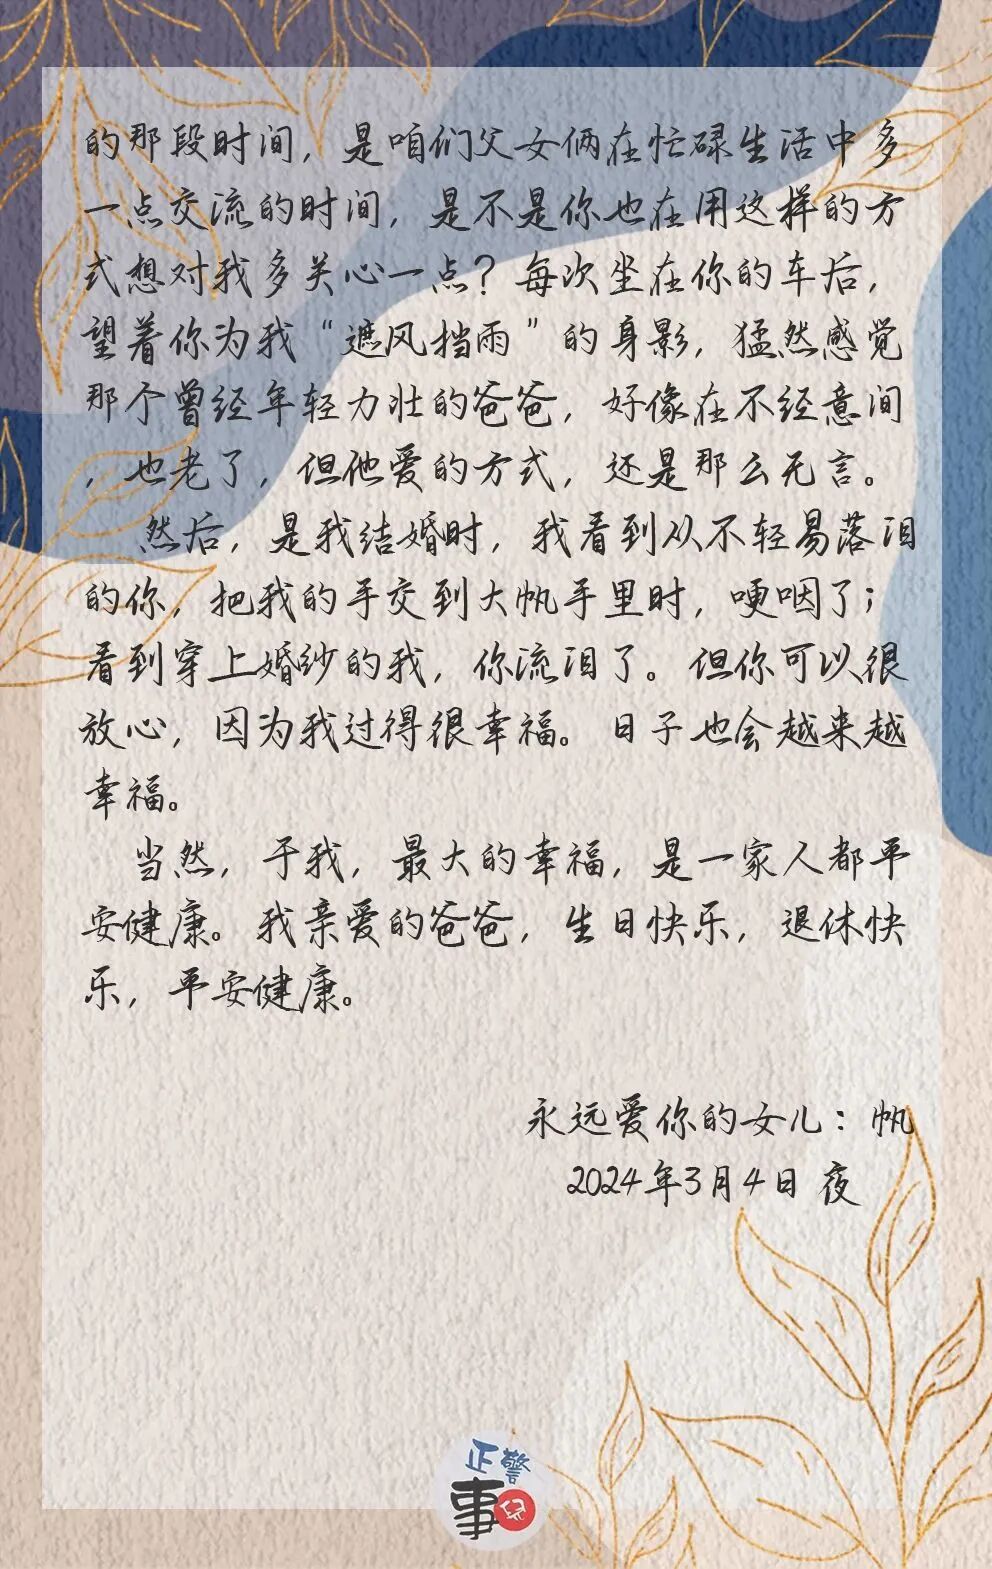 的那段时间，是咱们父女俩在忙碌生活中多
一点交流的时间，是不是你也在用这样的方
式想对我多关心一点？每次坐在你的车后，
望着你为我“遮风挡雨”的身影，猛然感觉
那个曾经年轻力壮的爸爸，好像在不经意间
，也老了，但他爱的方式，还是那么无言。
然后，是我结婚时，我看到从不轻易落泪
的你，把我的手交到大帆手里时，哽咽了；
看到穿上婚纱的我，你流泪了。但你可以很
放心，因为我过得很幸福。日子也会越来越
幸福。
当然，于我，最大的幸福，是一家人都平
安健康。我亲爱的爸爸，生日快乐，退休快
乐，平安健康。
永远爱你的女儿：帆
2024年3月4日 夜
正警
事兒